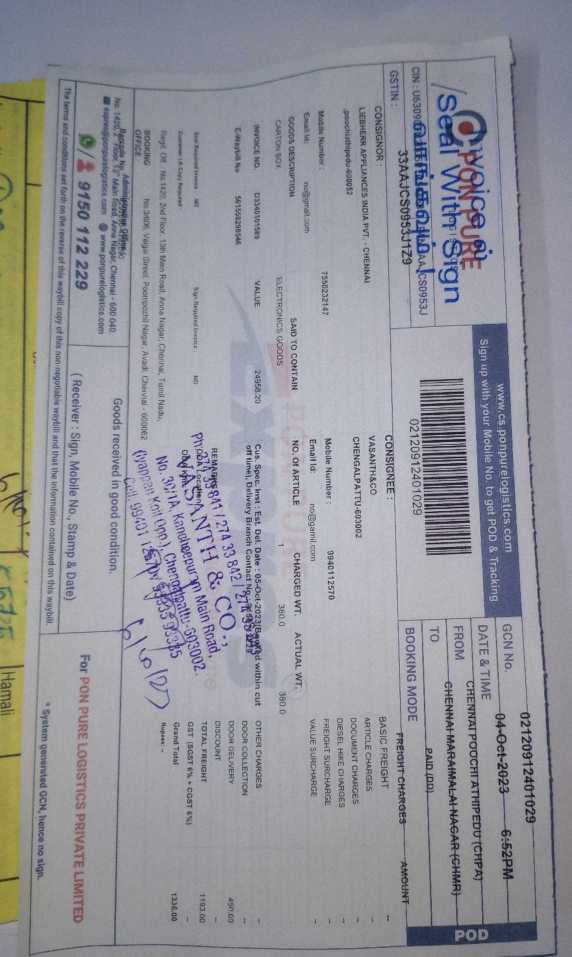 PON PURE
Invoice
Seal With Sign
www.cs.ponpurelogistics.com
Sign up with your Mobile No. to get POD & Tracking
02120912401029
GCN No. 02120912401029
DATE & TIME 04-Oct-2023 6:52PM
FROM CHENNAI POOCHI ATHIPEDU (CHPA)
TO CHENNAI MARAIMALAI NAGAR (CHMR)
BOOKING MODE PAID (DD)
POD
GSTIN : 33AAJCS0953J1Z9
CONSIGNOR :
LIEBHERR APPLIANCES INDIA PVT. - CHENNAI
poochiathipedu-600052
Mobile Number : 7550232147
Email Id: no@gmail.com
CONSIGNEE :
VASANTH&CO
CHENGALPATTU-603002
Mobile Number : 9940112570
Email Id: no@gamil.com
GOODS DESCRIPTION SAID TO CONTAIN NO. Of ARTICLE CHARGED WT. ACTUAL WT.
CARTON BOX ELECTRONICS GOODS 1 380.0 380.0
INVOICE NO. VALUE 24958.20
E-Waybill No
Cus. Spec. Inst : Est. Del. Date : 05-Oct-2023(Booked within cut
off time), Delivery Branch Contact No.
REMARKS
Sign Required Invoice NO
BOOKING OFFICE No.3406, Vaigai Street, Poompozhil Nagar, Avadi, Chennai - 600062
Regd. Off : No.1420, 2nd Floor, 13th Main Road, Anna Nagar, Chennai, Tamil Nadu,
FREIGHT CHARGES AMOUNT
BASIC FREIGHT -
ARTICLE CHARGES -
DOCUMENT CHARGES -
DIESEL HIKE CHARGES -
FREIGHT SURCHARGE -
VALUE SURCHARGE -
OTHER CHARGES -
DOOR COLLECTION -
DOOR DELIVERY 450.00
DISCOUNT -
TOTAL FREIGHT 1193.00
GST (SGST 6% + CGST 6%) -
Grand Total 1336.00
Rupees: -
VASANTH & CO.,
No. 30/1A, Kancheepuram Main Road,
(Iyappan Koil Opp.) Chengalpattu-603002.
No. 1420, 2nd Floor, 13th Main Road, Anna Nagar, Chennai - 600 040.
www.ponpurelogistics.com
9150 112 229
Goods received in good condition.
( Receiver : Sign, Mobile No., Stamp & Date)
For PON PURE LOGISTICS PRIVATE LIMITED
* System generated GCN, hence no sign.
The terms and conditions set forth on the reverse of this waybill copy of this non-negotiable waybill and that the information contained on this waybill.
Hamali